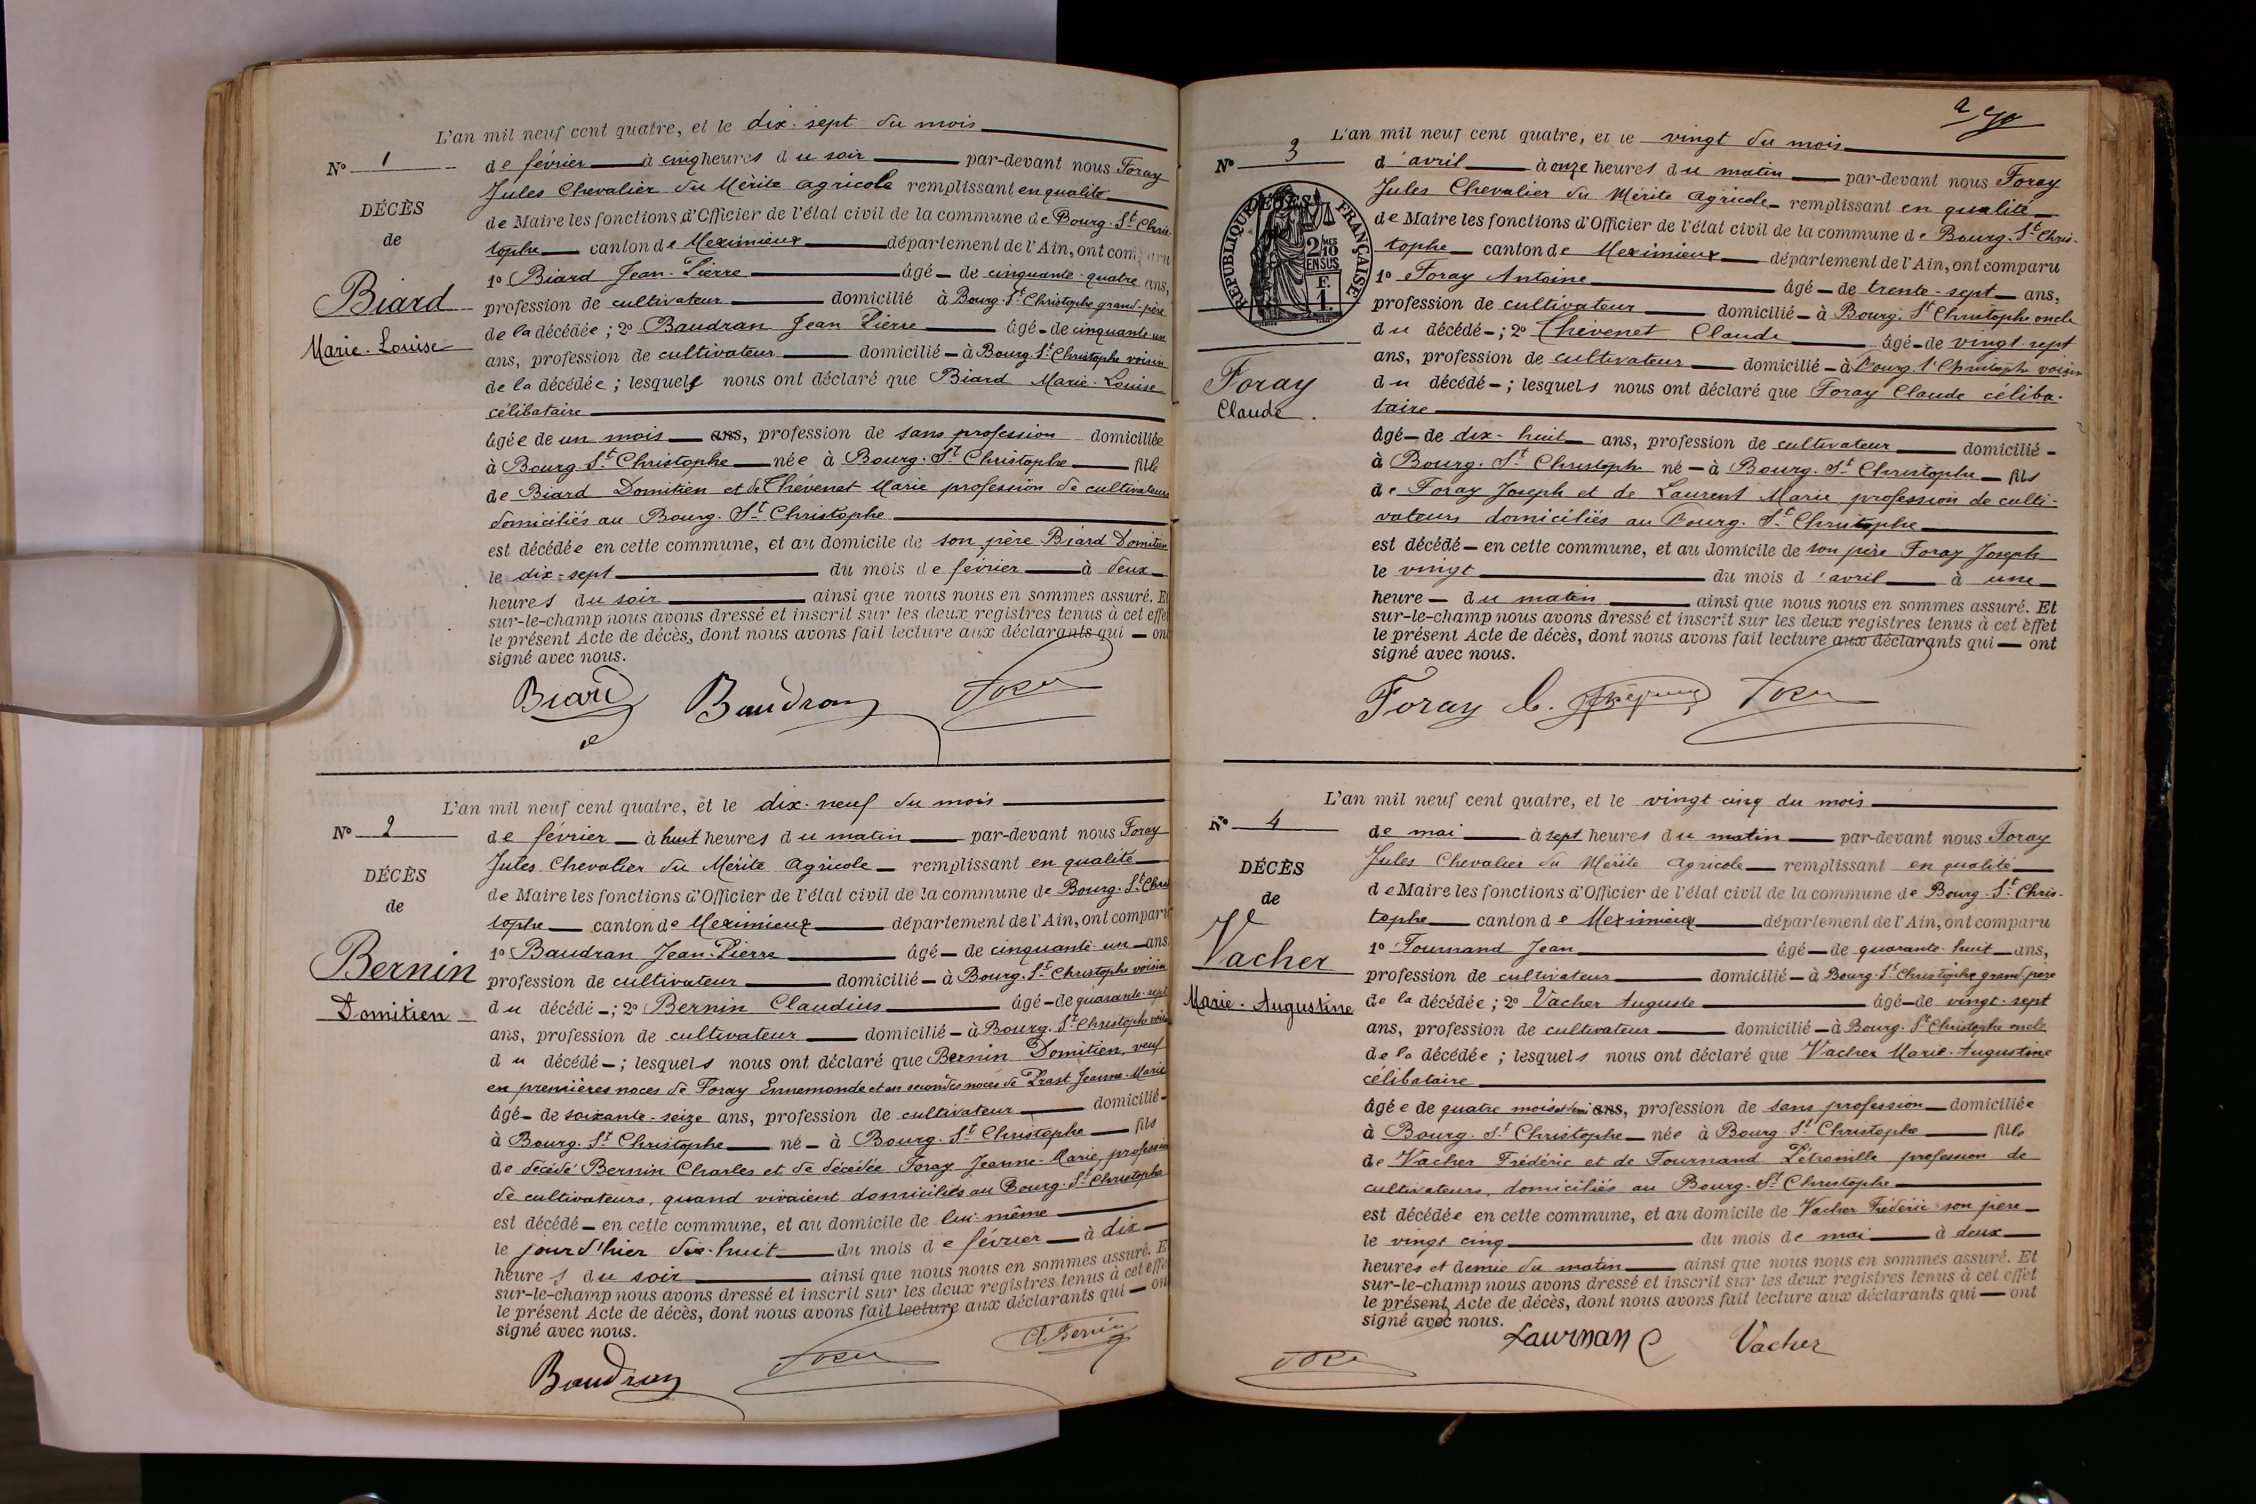 L'an mil neuf cent quatre, et le dix-sept du mois
N° 1
de février à cinq heures du soir par-devant nous Foray
Jules Chevalier du Mérite agricole remplissant en qualité
DÉCÈS
de Maire les fonctions d'Officier de l'état civil de la commune de Bourg-St-Chris-
de
tophe canton de Meximieux département de l'Ain, ont comparu
1° Biard Jean-Pierre âgé de cinquante-quatre ans,
Biard
profession de cultivateur domicilié à Bourg-St-Christophe grand-père
de la décédée; 2° Baudran Jean Pierre âgé de cinquante un
Marie-Louise
ans, profession de cultivateur domicilié à Bourg-St-Christophe voisin
de la décédée; lesquels nous ont déclaré que Biard Marie-Louise
célibataire
âgée de un mois ans, profession de sans profession domiciliée
à Bourg-St-Christophe née à Bourg-St-Christophe fille
de Biard Domitien et de Thévenet Marie profession de cultivateurs
domiciliés au Bourg-St-Christophe
est décédée en cette commune, et au domicile de son père Biard Domitien
le dix-sept du mois de février à deux
heures du soir ainsi que nous nous en sommes assuré. Et
sur-le-champ nous avons dressé et inscrit sur les deux registres tenus à cet effet
le présent Acte de décès, dont nous avons fait lecture aux déclarants qui ont
signé avec nous.
Biard Baudran Foray
L'an mil neuf cent quatre, et le dix-neuf du mois
N° 2
de février à huit heures du matin par-devant nous Foray
Jules Chevalier du Mérite Agricole remplissant en qualité
DÉCÈS
de Maire les fonctions d'Officier de l'état civil de la commune de Bourg-St-Chris
de
tophe canton de Meximieux département de l'Ain, ont comparu
1° Baudran Jean-Pierre âgé de cinquante-un ans
Bernin
profession de cultivateur domicilié à Bourg-St-Christophe voisin
Domitien
du décédé; 2° Bernin Claudius âgé de quarante-sept
ans, profession de cultivateur domicilié à Bourg-St-Christophe voisin
du décédé; lesquels nous ont déclaré que Bernin Domitien, veuf
en premières noces de Foray Ennemonde et en secondes noces de Prast Jeanne-Marie
âgé de soixante-seize ans, profession de cultivateur domicilié
à Bourg-St-Christophe né à Bourg-St-Christophe fils
de décédé Bernin Charles et de décédée Foray Jeanne-Marie, profession
de cultivateurs, quand vivaient domiciliés au Bourg-St-Christophe
est décédé en cette commune, et au domicile de lui-même
le jour d'hier dix-huit du mois de février à dix
heures du soir ainsi que nous nous en sommes assuré. Et
sur-le-champ nous avons dressé et inscrit sur les deux registres tenus à cet effet
le présent Acte de décès, dont nous avons fait lecture aux déclarants qui ont
signé avec nous.
Baudran Foray Cl. Bernin
L'an mil neuf cent quatre, et le vingt du mois
N° 3
d'avril à onze heures du matin par-devant nous Foray
Jules Chevalier du Mérite Agricole remplissant en qualité
RÉPUBLIQUE FRANÇAISE
2/10MES
EN SUS
de Maire les fonctions d'Officier de l'état civil de la commune de Bourg-St-Chris-
tophe canton de Meximieux département de l'Ain, ont comparu
1° Foray Antoine âgé de trente-sept ans,
profession de cultivateur domicilié à Bourg-St-Christophe oncle
du décédé; 2° Thévenet Claude âgé de vingt-sept
ans, profession de cultivateur domicilié à Bourg-St-Christophe voisin
Foray
Claude
du décédé; lesquels nous ont déclaré que Foray Claude céliba-
taire
âgé de dix-huit ans, profession de cultivateur domicilié
à Bourg-St-Christophe né à Bourg-St-Christophe fils
de Foray Joseph et de Laurent Marie profession de culti-
vateurs domiciliés au Bourg-St-Christophe
est décédé en cette commune, et au domicile de son père Foray Joseph
le vingt du mois d'avril à une
heure du matin ainsi que nous nous en sommes assuré. Et
sur-le-champ nous avons dressé et inscrit sur les deux registres tenus à cet effet
le présent Acte de décès, dont nous avons fait lecture aux déclarants qui ont
signé avec nous.
Foray C. Foray
L'an mil neuf cent quatre, et le vingt-cinq du mois
N° 4
de mai à sept heures du matin par-devant nous Foray
Jules Chevalier du Mérite Agricole remplissant en qualité
DÉCÈS
de Maire les fonctions d'Officier de l'état civil de la commune de Bourg-St-Chris-
de
tophe canton de Meximieux département de l'Ain, ont comparu
1° Fournand Jean âgé de quarante-huit ans,
Vacher
profession de cultivateur domicilié à Bourg-St-Christophe grand-père
Marie-Augustine
de la décédée; 2° Vacher Auguste âgé de vingt-sept
ans, profession de cultivateur domicilié à Bourg-St-Christophe oncle
de la décédée; lesquels nous ont déclaré que Vacher Marie-Augustine
célibataire
âgée de quatre mois et demi ans, profession de sans profession domiciliée
à Bourg-St-Christophe née à Bourg-St-Christophe fille
de Vacher Frédéric et de Fournand Pétronille profession de
cultivateurs, domiciliés au Bourg-St-Christophe
est décédée en cette commune, et au domicile de Vacher Frédéric son père
le vingt cinq du mois de mai à deux
heures et demie du matin ainsi que nous nous en sommes assuré. Et
sur-le-champ nous avons dressé et inscrit sur les deux registres tenus à cet effet
le présent Acte de décès, dont nous avons fait lecture aux déclarants qui ont
signé avec nous.
Foray Vacher